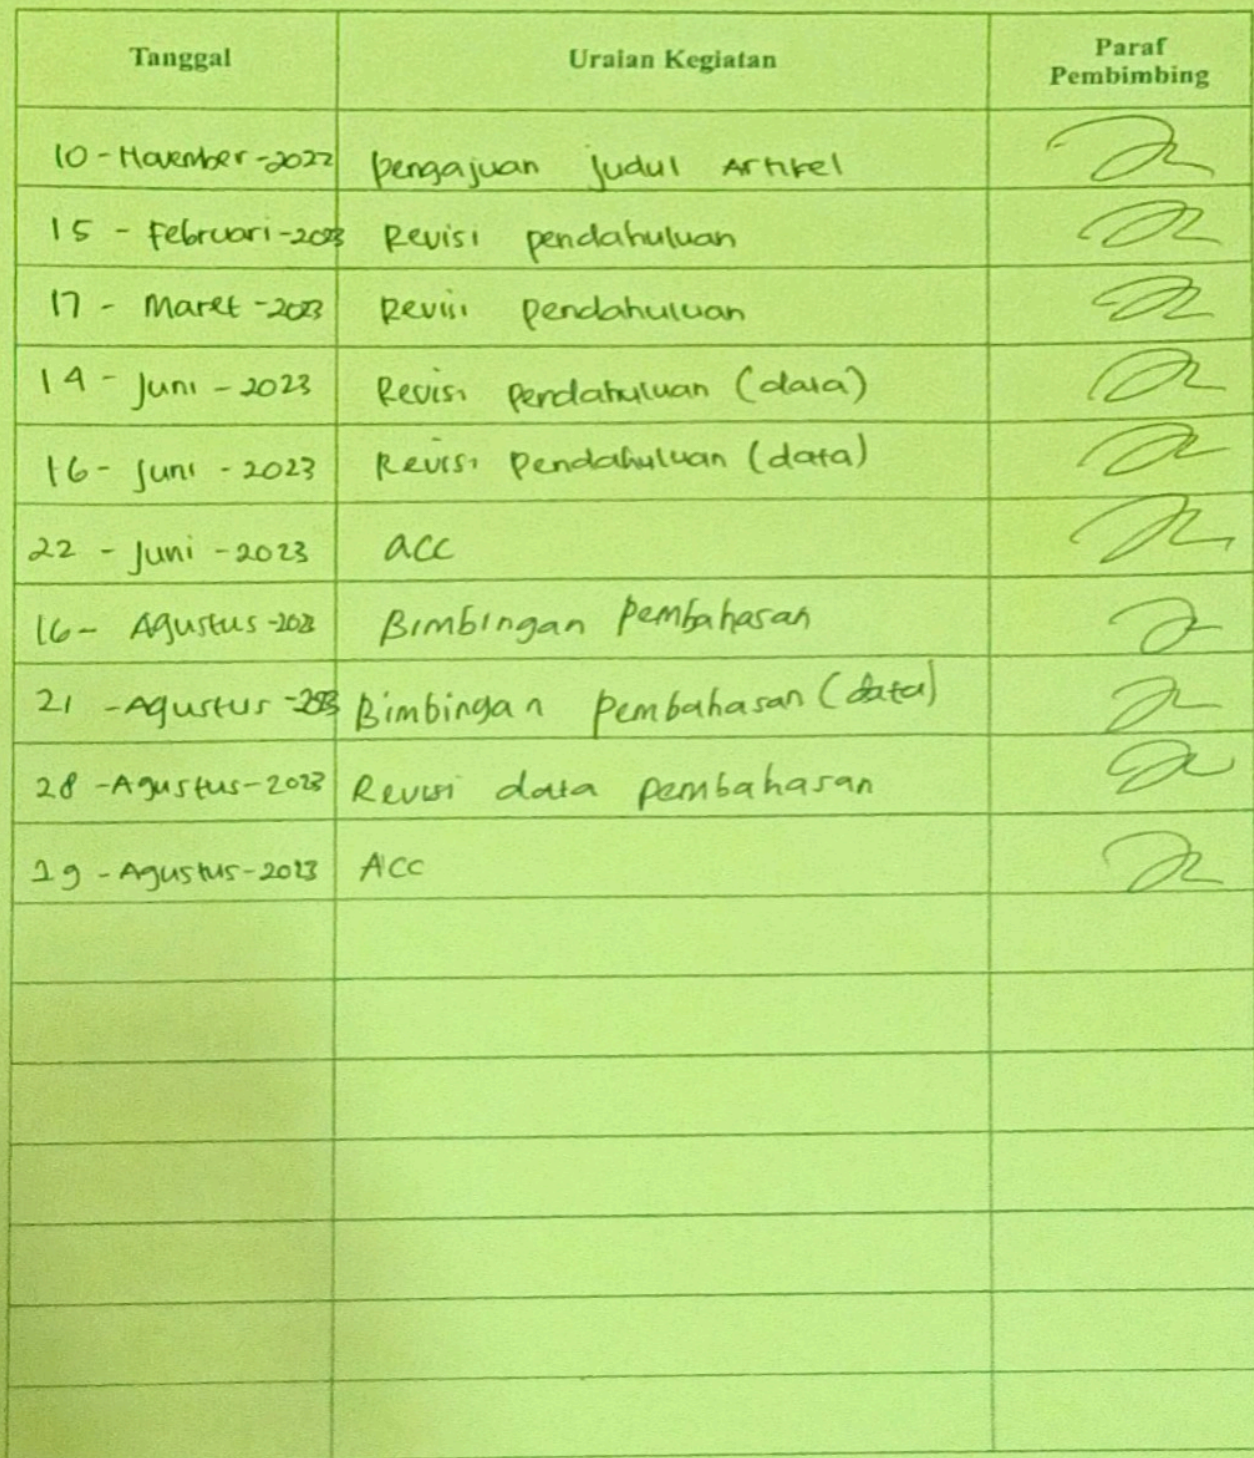 Tanggal Uraian Kegiatan Paraf Pembimbing
10 - November - 2022 pengajuan judul Artikel
15 - Februari - 2023 Revisi pendahuluan
17 - Maret - 2023 Revisi pendahuluan
14 - Juni - 2023 Revisi pendahuluan (data)
16 - Juni - 2023 Revisi pendahuluan (data)
22 - Juni - 2023 acc
16 - Agustus - 2023 Bimbingan pembahasan
21 - Agustus - 2023 Bimbingan pembahasan (data)
28 - Agustus - 2023 Revisi data pembahasan
29 - Agustus - 2023 ACC